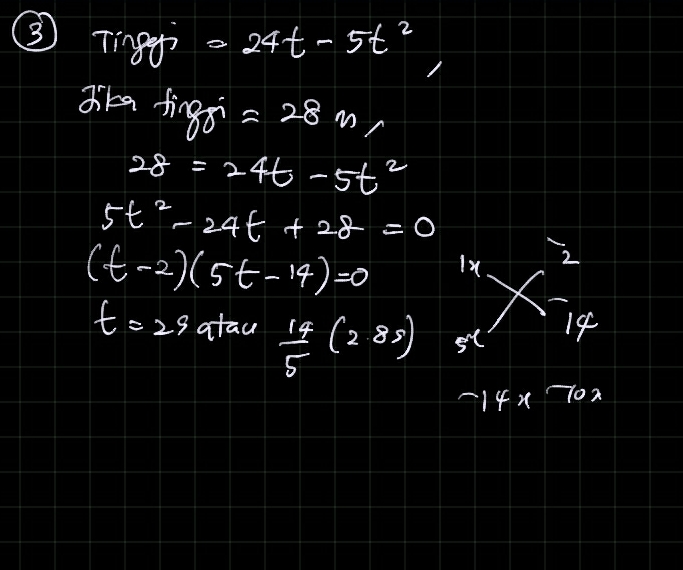 ③ Tinggi = 24t - 5t²,
Jika tinggi = 28 m,
28 = 24t - 5t²
5t² - 24t + 28 = 0
(t-2)(5t-14)=0
t = 2s atau 14/5 (2.8s)
1x -2
5x -14
-14x -10x